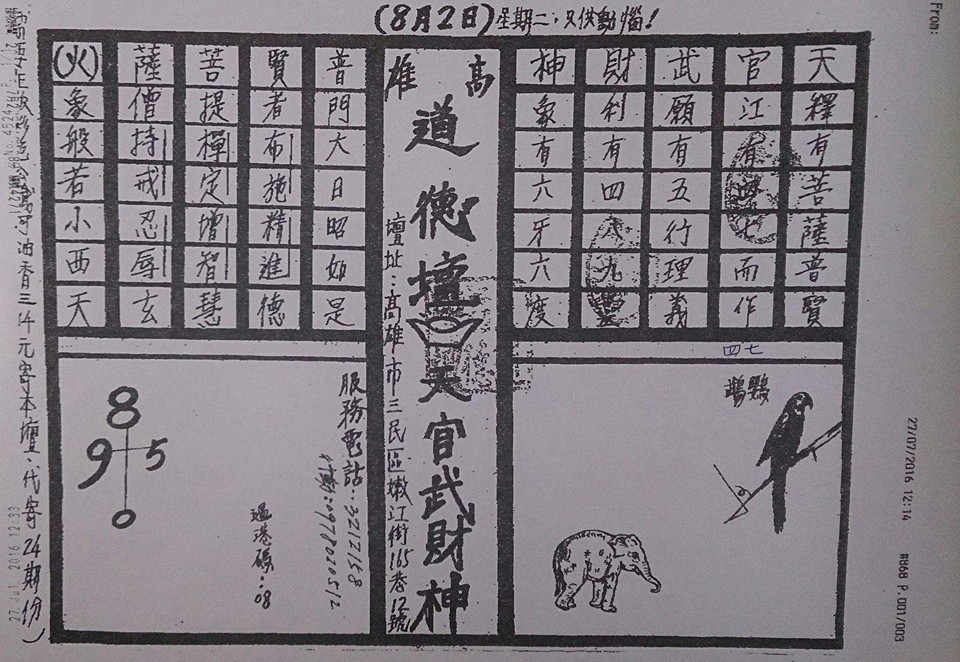 (8月2日)星期二，只供動惱！
天釋有菩薩普賢
官江有四七而作
武願有五行理義
財利有四八九
神象有六牙六度
四七
鸚鵡
高雄
道德壇
天官武財神
壇址：高雄市三民區嫩江街165巷12號
普門大日昭如是
賢者布施精進德
菩提禪定增智慧
薩僧持戒忍辱玄
(火)象般若小西天
服務電話：3212158
行動：0978020512
過港碼：08
8
9 5
0
油香三
元寄本壇，代寄24期份)
27. Jul. 2016 12:33
From:
27/07/2016 12:14
#868 P.001/003